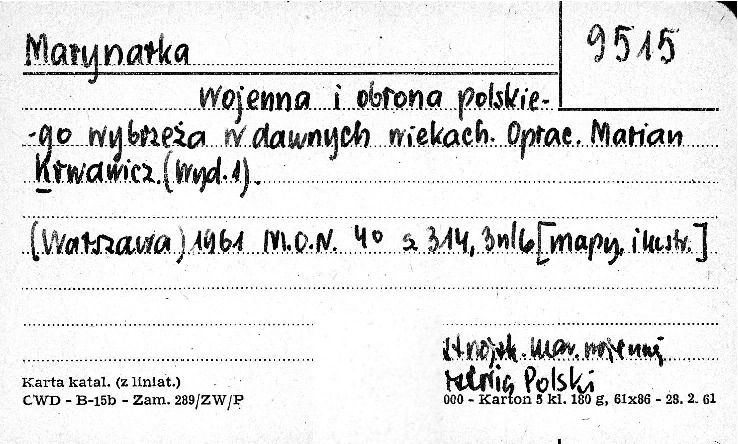 Marynarka
9515
Wojenna i obrona polskie-
-go wybrzeża w dawnych wiekach. Oprac. Marian
Krwawicz. (Wyd. 1).
(Warszawa) 1961 M.O.N. 4° s. 314, 3 nlb [mapy, ilustr.]
mar. wojennej
Polski
Karta katal. (z liniat.)
CWD - B-15b - Zam. 289/ZW/P
000 - Karton 5 kl. 180 g, 61x86 - 28. 2. 61